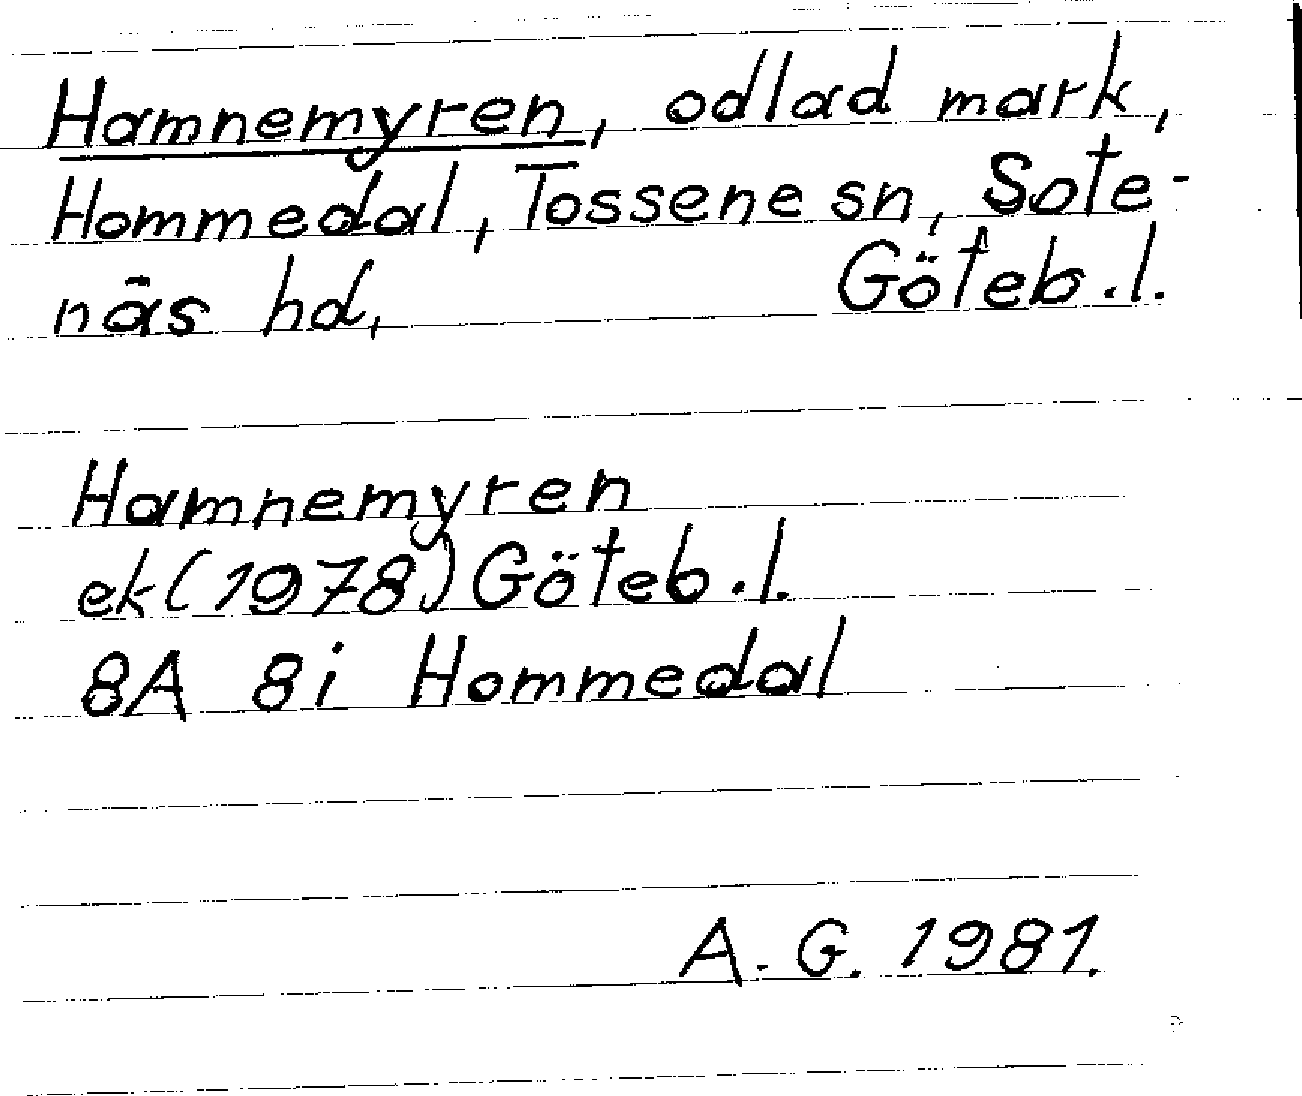 Hamnemyren, odlad mark,
Hommedal, Tossene sn, Sote-
näs hd, Göteb.l.
Hamnemyren
ek(1978) Göteb.l.
8A 8i Hommedal
A. G. 1981.